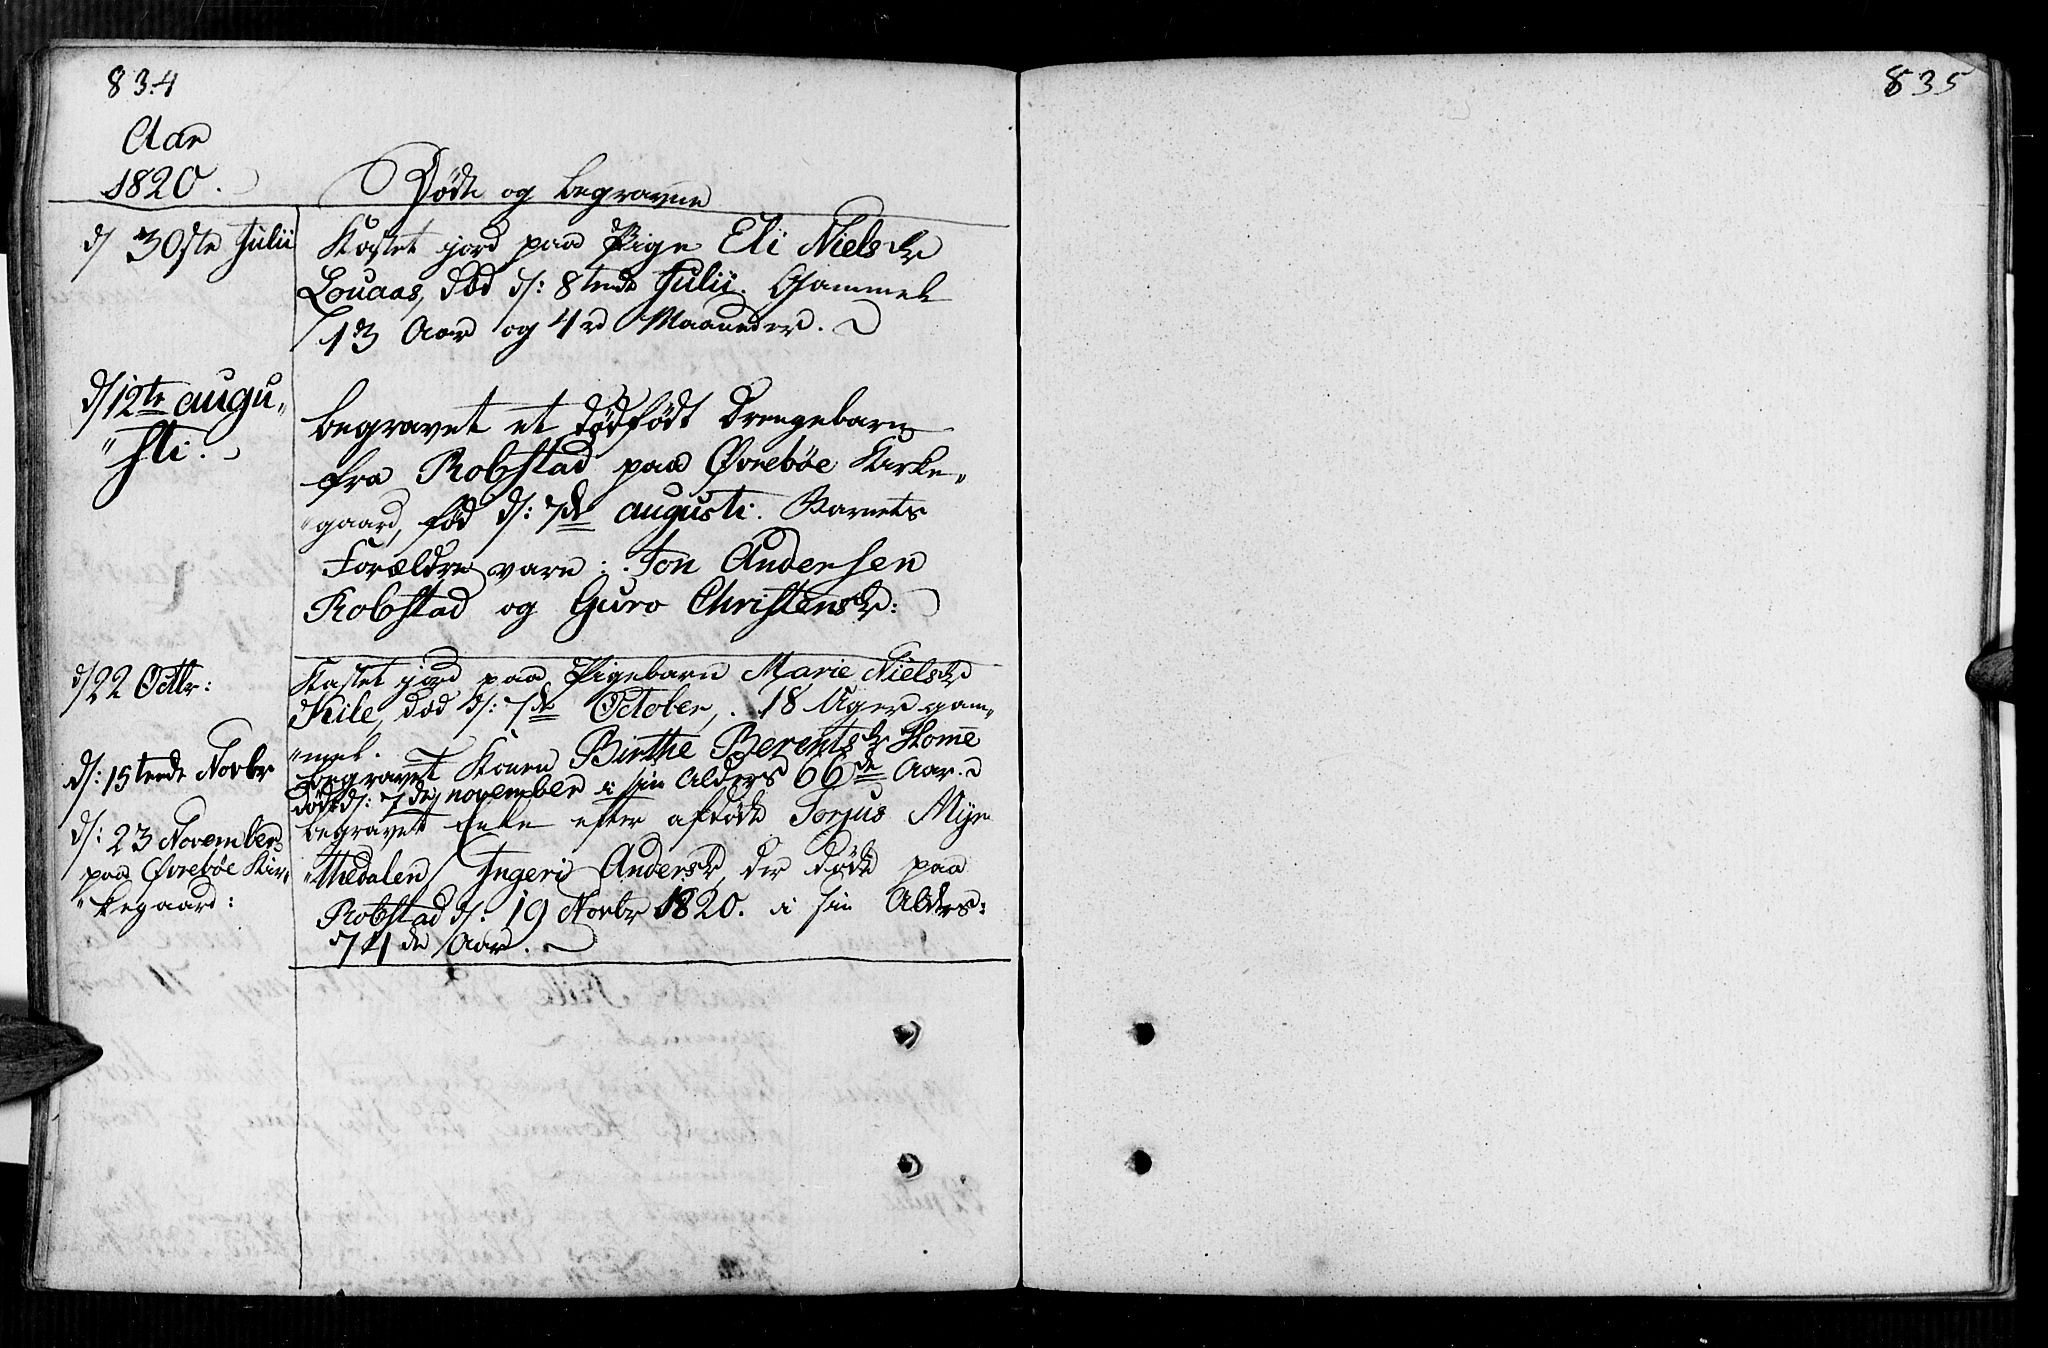 834
Aar
1820.
Døde og begravne
d/ 30ste Julii
Kastet jord paa Pige Eli Nielsdr
Louaas, død d/: 8tende Julii. Gammel
13 Aar og 4r Maaneder.
d/12te augu„
„sti.
begravet et dødfødt Drengebarn
fra Robstad paa Øvrebøe Kirke„
„gaard, fød d/: 7de augusti. Barnets
Forældre vare: Jon Andersen
Robstad og Guro Christensdr:
d/22 Octbr:
Kastet jord paa Pigebarn Marie Nielsdr
Kile, død d/: 7de October, 18 Uger gam„
„mel.
d/: 15tende Novbr
begravet Konen Birthe Berentsdr Homme
døde d/: 7de november i sin Alders 66de Aar.
d/: 23 November
paa Øvrebøe Kir„
„kegaard:
begravet Enke efter afdøde Torjus Myr
„thedalen, Ingeri Andersdr, der døde paa
Robstad d/: 19 Novbr 1820. i sin Alders:
74de Aar.
835